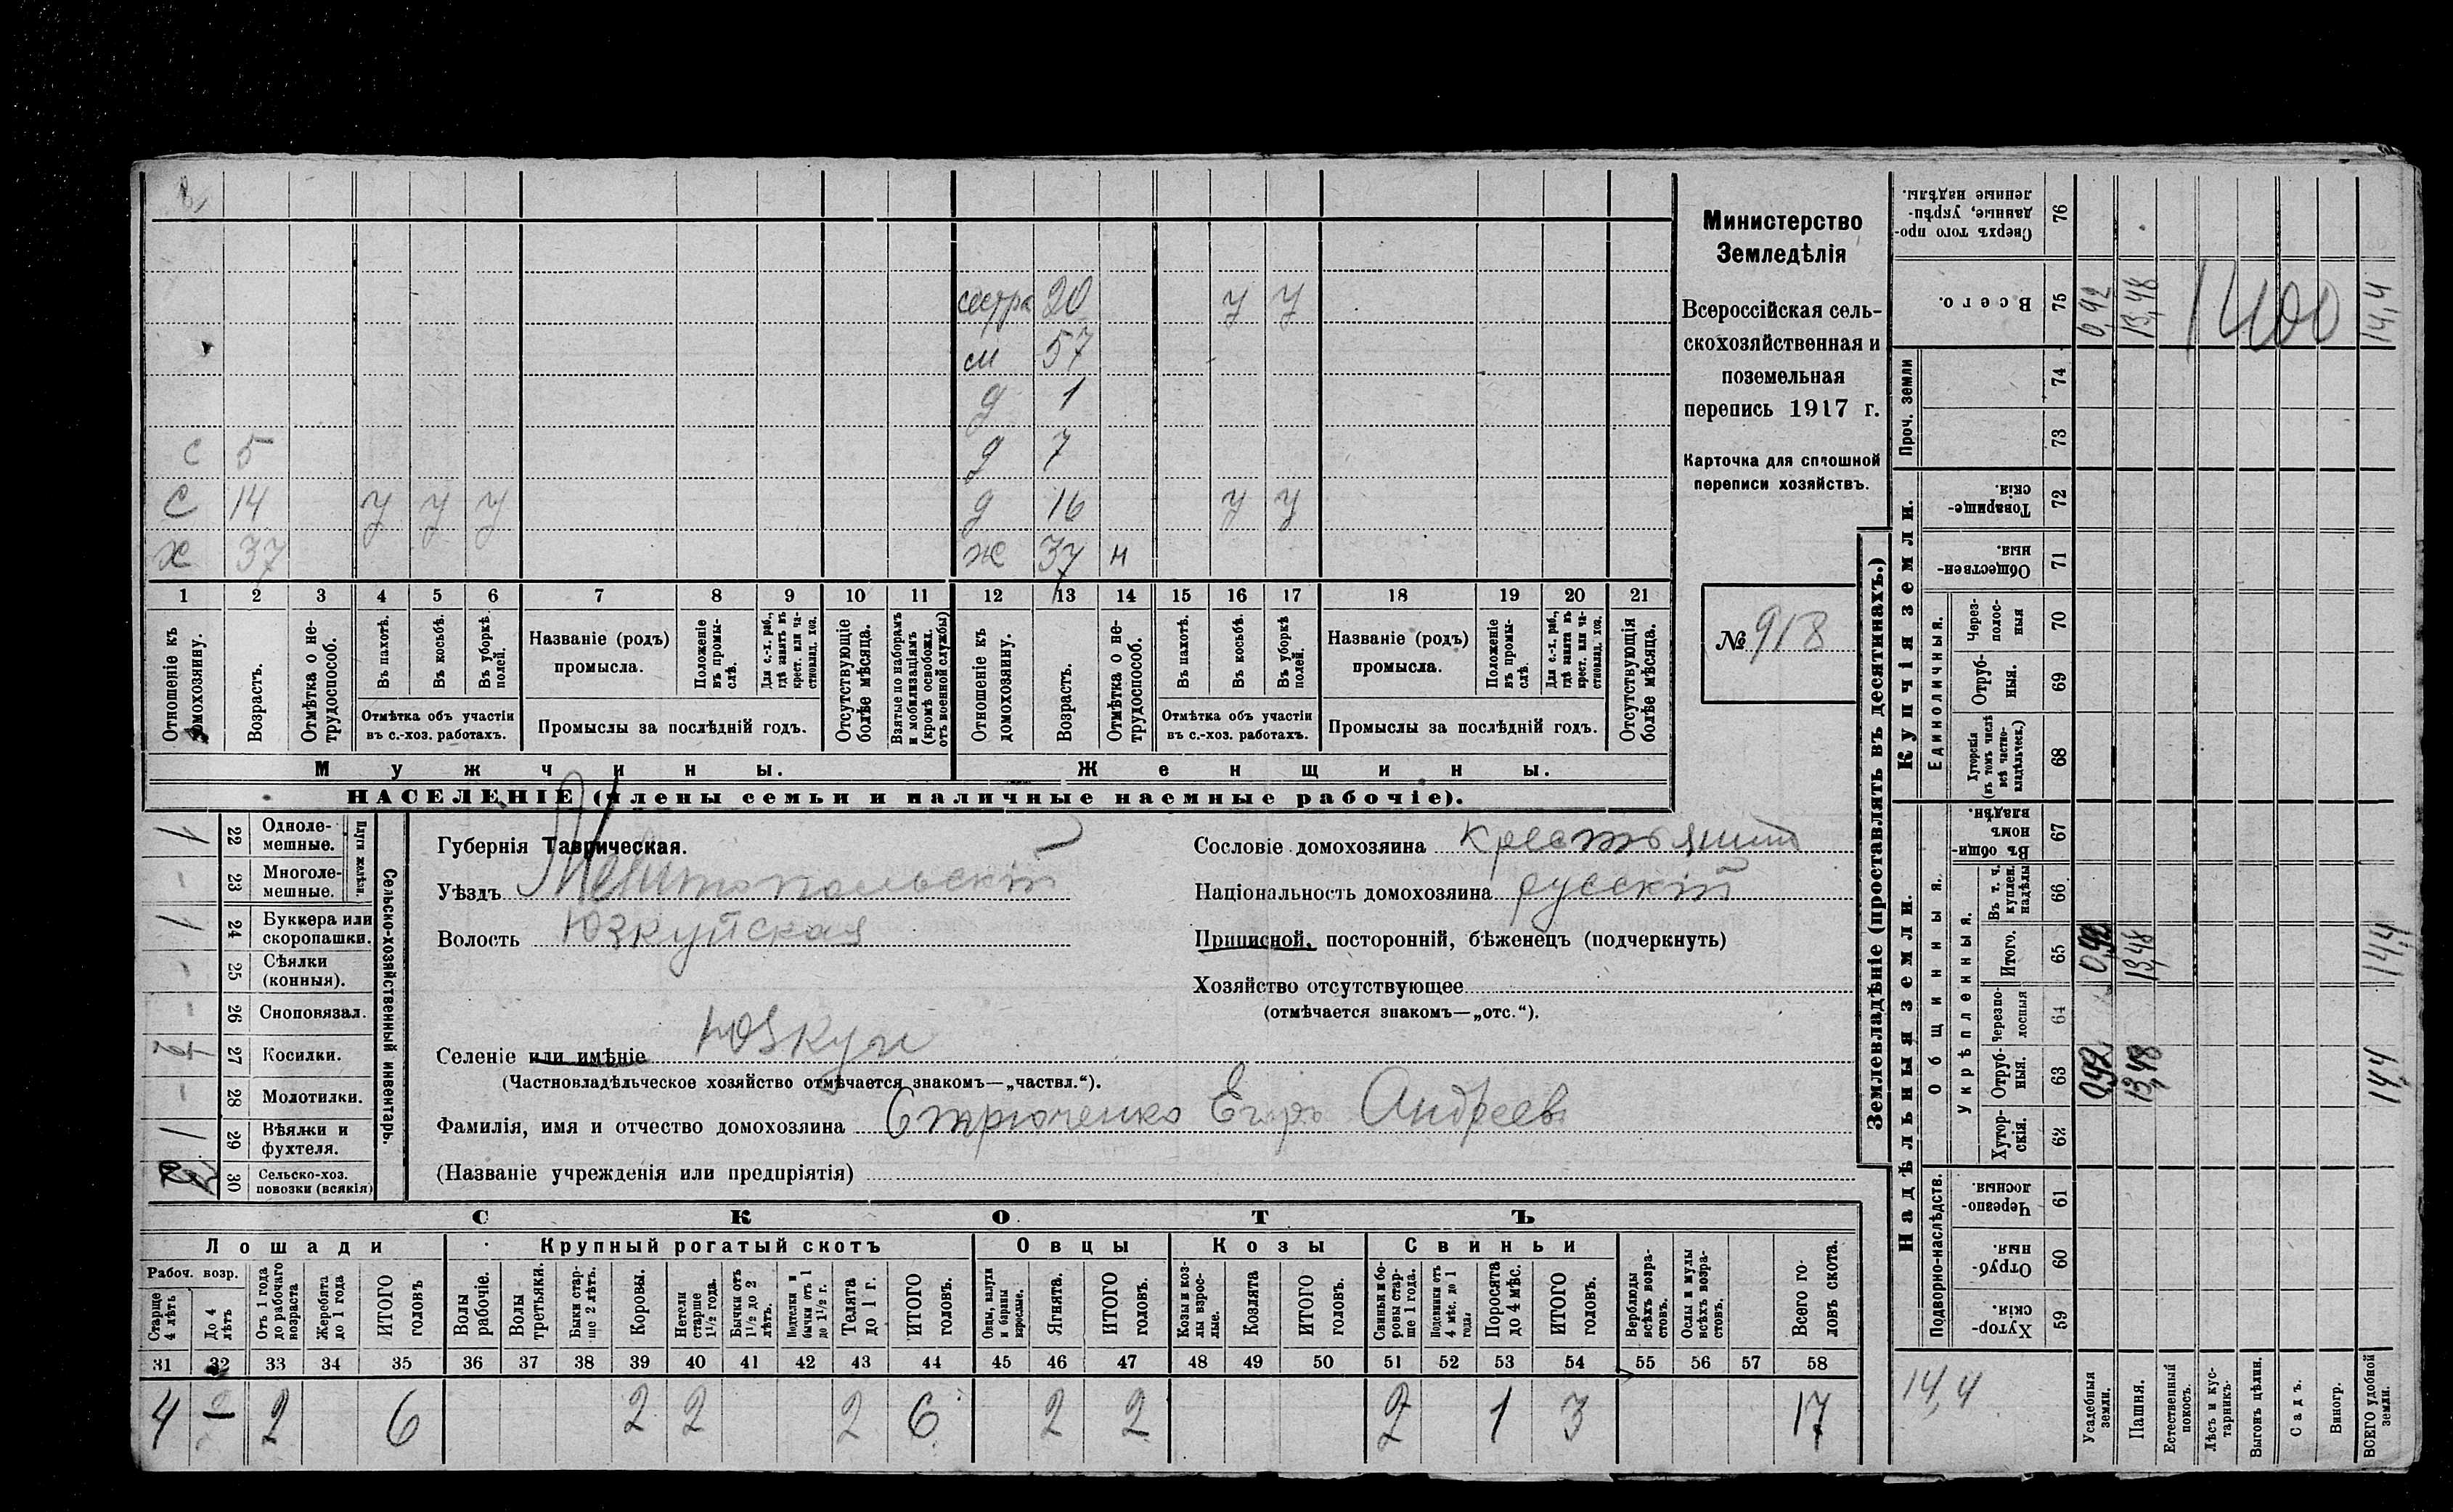 сестра 20 у у
м 57
д 1
с 5 д 7
С 14 у у у д 16 у у
х 37 ж 37 н
1 2 3 4 5 6 7 8 9 10 11 12 13 14 15 16 17 18 19 20 21
Отношеніе къ домохозяину.
Возрастъ.
Отмѣтка о не-трудоспособ.
Въ пахотѣ.
Въ косьбѣ.
Въ уборкѣ полей.
Отмѣтка объ участіи
въ с.-хоз. работахъ.
Названіе (родъ)
промысла.
Положеніе въ промы-слѣ.
Для с.-х. раб., гдѣ занятъ въ крест. или ча-стновлад. хоз.
Промыслы за послѣдній годъ.
Отсутствующіе болѣе мѣсяца.
Взятые по наборамъ и мобилизаціямъ (кромѣ освобожд. отъ военной службы)
Отношеніе къ домохозяину.
Возрастъ.
Отмѣтка о не-трудоспособ.
Въ пахотѣ.
Въ косьбѣ.
Въ уборкѣ полей.
Отмѣтка объ участіи
въ с.-хоз. работахъ.
Названіе (родъ)
промысла.
Положеніе въ промы-слѣ.
Для с.-х. раб., гдѣ занята въ крест. или ча-стновлад. хоз.
Промыслы за послѣдній годъ.
Отсутствующія болѣе мѣсяца.
Мужчины. Женщины.
НАСЕЛЕНІЕ (члены семьи и наличные наемные рабочіе).
Министерство
Земледѣлія
Всероссійская сель-
скохозяйственная и
поземельная
перепись 1917 г.
Карточка для сплошной
переписи хозяйствъ.
№ 918
Сельско-хозяйственный инвентарь.
Плуги желѣзн.
1 22 Одноле-мешные.
- 23 Многоле-мешные.
1 24 Буккера или скоропашки.
- 25 Сѣялки (конныя).
- 26 Сноповязал.
27 Косилки.
- 28 Молотилки.
1 29 Вѣялки и фухтеля.
30 Сельско-хоз. повозки (всякія)
Губернія Таврическая.
Уѣздъ Мелитопольскій
Волость Юзкуйская
Селеніе или имѣніе Юзкуи
(Частновладѣльческое хозяйство отмѣчается знакомъ—„частвл.“).
Фамилія, имя и отчество домохозяина Стрюченко Егоръ Андреев
(Названіе учрежденія или предпріятія)
Сословіе домохозяина крестьянин
Національность домохозяина русскій
Приписной, посторонній, бѣженецъ (подчеркнуть)
Хозяйство отсутствующее
(отмѣчается знакомъ—„отс.“).
СКОТЪ
Лошади Крупный рогатый скотъ Овцы Козы Свиньи
Рабоч. возр.
Старше 4 лѣтъ
До 4 лѣтъ
Отъ 1 года до рабочаго возраста
Жеребята до 1 года
ИТОГО головъ
Волы рабочіе.
Волы третьяки.
Быки стар-ше 2 лѣтъ.
Коровы.
Нетели старше 1½ года.
Бычки отъ 1½ до 2 лѣтъ.
Подтелки и бычки отъ 1 до 1½ г.
Телята до 1 г.
ИТОГО головъ.
Овцы, валухи и бараны взрослые.
Ягнята.
ИТОГО головъ.
Козы и коз-лы взрос-лые.
Козлята
ИТОГО головъ.
Свиньи и бо-ровы стар-ше 1 года.
Подсвинки отъ 4 мѣс. до 1 года
Поросята до 4 мѣс.
ИТОГО головъ.
Верблюды всѣхъ возра-стовъ.
Ослы и мулы всѣхъ возра-стовъ.
Всего го-ловъ скота.
31 32 33 34 35 36 37 38 39 40 41 42 43 44 45 46 47 48 49 50 51 52 53 54 55 56 57 58
4 2 6 2 2 2 6 2 2 2 1 3 17
Землевладѣніе (проставлять въ десятинахъ.)
Надѣльныя земли.
Купчія земли.
Проч. земли
Подворно-наслѣдств.
Общинныя.
Укрѣпленныя.
Единоличныя.
59 Хутор-скія.
60 Отруб-ныя.
61 Черезпо-лосныя.
62 Хутор-скія.
63 Отруб-ныя. 0,92 13,48 14,4
64 Черезпо-лосныя
65 Итого. 0,92 13,48 14,4
66 Въ т. ч. куплен. надѣлы
67 Въ общи-номъ владѣн.
68 Хуторскія (въ томъ числѣ всѣ частно-владѣльческ.)
69 Отруб-ныя.
70 Через-полос-ныя
71 Обществен-ныя.
72 Товарище-скія.
73
74
75 Всего. 0,92 13,48 1400 14,4
76 Сверхъ того про-данные, укрѣп-ленные надѣлы.
14,4
Усадебныя земли.
Пашня.
Естественный покосъ.
Лѣсъ и кус-тарникъ.
Выгонъ цѣлин.
Садъ.
Виногр.
ВСЕГО удобной земли.